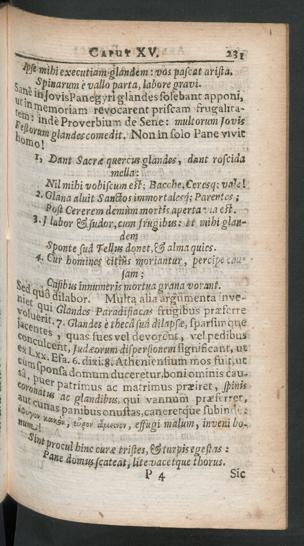 CAPUT XV. 231
Ipse mihi executiam glandem: vos pascat arista.
Spinarum è vallo parta, labore gravi.
Sanè in Jovis Panegyri glandes solebant apponi,
ut in memoriam revocarent priscam frugalita-
tem: indè Proverbium de Sene: multorum Jovis
Festorum glandes comedit. Non in solo Pane vivit
homo!
1, Dant Sacræ quercus glandes, dant roscida
mella:
Nil mihi vobiscum est; Bacche, Ceresq; vale!
2. Glans aluit Sanctos immortalesq; Parentes;
Post Cererem demùm mortis aperta via est.
3. I labor & sudor, cum frugibus: et mihi glan-
dem
Sponte suâ Tellus donet, & alma quies.
4. Cur homines citiùs moriantur, percipe cau-
sam;
Casibus innumeris mortua grana vorant.
Sed quò dilabor. Multa alia argumenta inve-
niet qui Glandes Paradisiacas frugibus præferre
voluerit. 7. Glandes è thecâ suâ dilapsæ, sparsim quæ
jacentes, quas sues vel devorent, vel pedibus
conculcent, Judæorum dispersionem significant, ut
ex Lxx. Esa. 6. dixi: 8. Atheniensium mos fuit, ut
cùm sponsa domum duceretur, boni ominis cau-
sâ, puer patrimus ac matrimus præiret, spinis
coronatus ac glandibus, qui vannum præferret,
aut cunas panibus onustas, caneretque subinde:
ἔφυγον κακὸν, εὗρον ἄμεινον, effugi malum, inveni bo-
num.
Sint procul hinc curæ tristes, & turpis egestas:
Pane domus scateat, lite vacetque thorus.
P 4 Sic